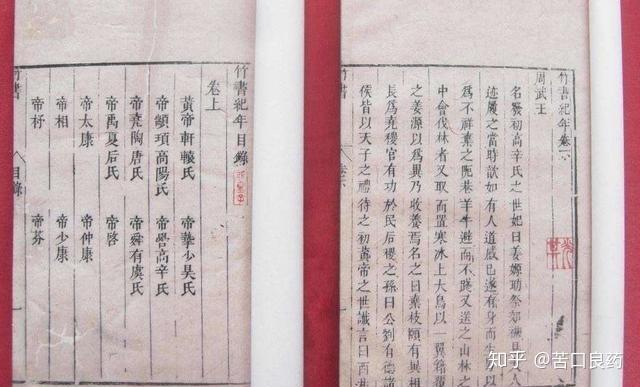 竹書紀年目錄
卷上
黃帝軒轅氏 帝摯少昊氏
帝顓頊高陽氏 帝嚳高辛氏
帝堯陶唐氏 帝舜有虞氏
帝禹夏后氏 帝啓
帝太康 帝仲康
帝相 帝少康
帝杼 帝芬
竹書 目錄 一
竹書紀年卷下
周武王
名發初高辛氏之世妃曰姜嫄助祭郊禖見大
迹履之當時歆如有人道感已遂有身而生男
爲不祥棄之阨巷羊牛避而不踐又送之山林之
中會伐林者又取而置寒冰上大鳥以一翼藉覆
之姜源以爲異乃收養焉名之曰棄枝頤有異相
長爲堯稷官有功於民后稷之孫曰公劉有德諸
侯皆以天子之禮待之初黃帝之世讖言曰西
竹書
知乎 @苦口良药